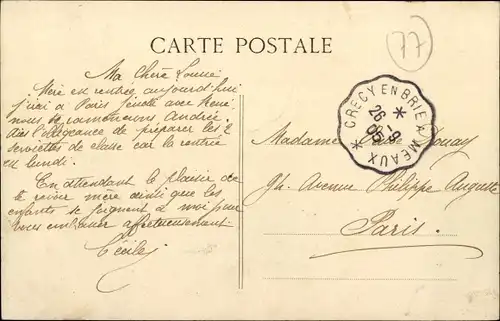 77
CARTE POSTALE
Ma Chère Louise
Mère est rentrée aujourd'hui
à Paris avec René
nous ramènerons Andrée.
l'obligeance de préparer les 2
serviettes de classe car la rentrée
est lundi.
En attendant le plaisir de
te revoir mère ainsi que les
enfants se joignent à moi pour
vous embrasser affectueusement
Cécile
CRECY EN BRIE A MEAUX
26-9
05
Madame
Avenue Philippe Auguste
Paris.